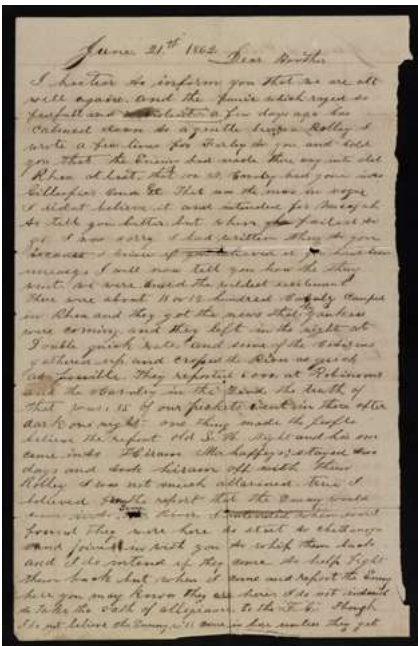 June 21st 1862 Dear Brother
I hasten to inform you that we are all
well again and the panic which raged so
fearfull and a few days ago has
calmed down to a gentle breeze Rolley I
wrote a few lines for to you and told
you that the Enemy had made there way into old
Rhea at last, that 100 S. Cavalry had gone into
Gillespies and it. That was the news in vogue
I did not believe it and intended for
to tell you better but when failed to
go I was sorry I had written thing to you
because I knew if you believed it you have been
uneasy I will now tell you how the thing
went, we were under the wildest excitement
There were about 11 or 12 hundred Cavalry Camped
in Rhea and they got the news that Yankees
were coming and they left in the night at
Double quick rate and some of the citizens
gathered up and crossed the River as quick
as possible. They reported 6000 at Robinsons
and the Cavalry in the the truth of
that was. 15 of our pickets went in there after
dark one night one thing made the people
believe the report old S. W. and his son
came into Hiram stayed two
days and took hiram off with them
Rolley I was not much allarmed true I
believed the report that the Enemy would
come into river I intended when word
found they were here to start to chattanooga
and join in with you to whip them back
and I do intend if they come to help fight
them back but when it come and report the Enemy
here you may know they are here I do not intend
to take the oath of allegiance to the Though
I do not believe the Enemy will come in here unless they get